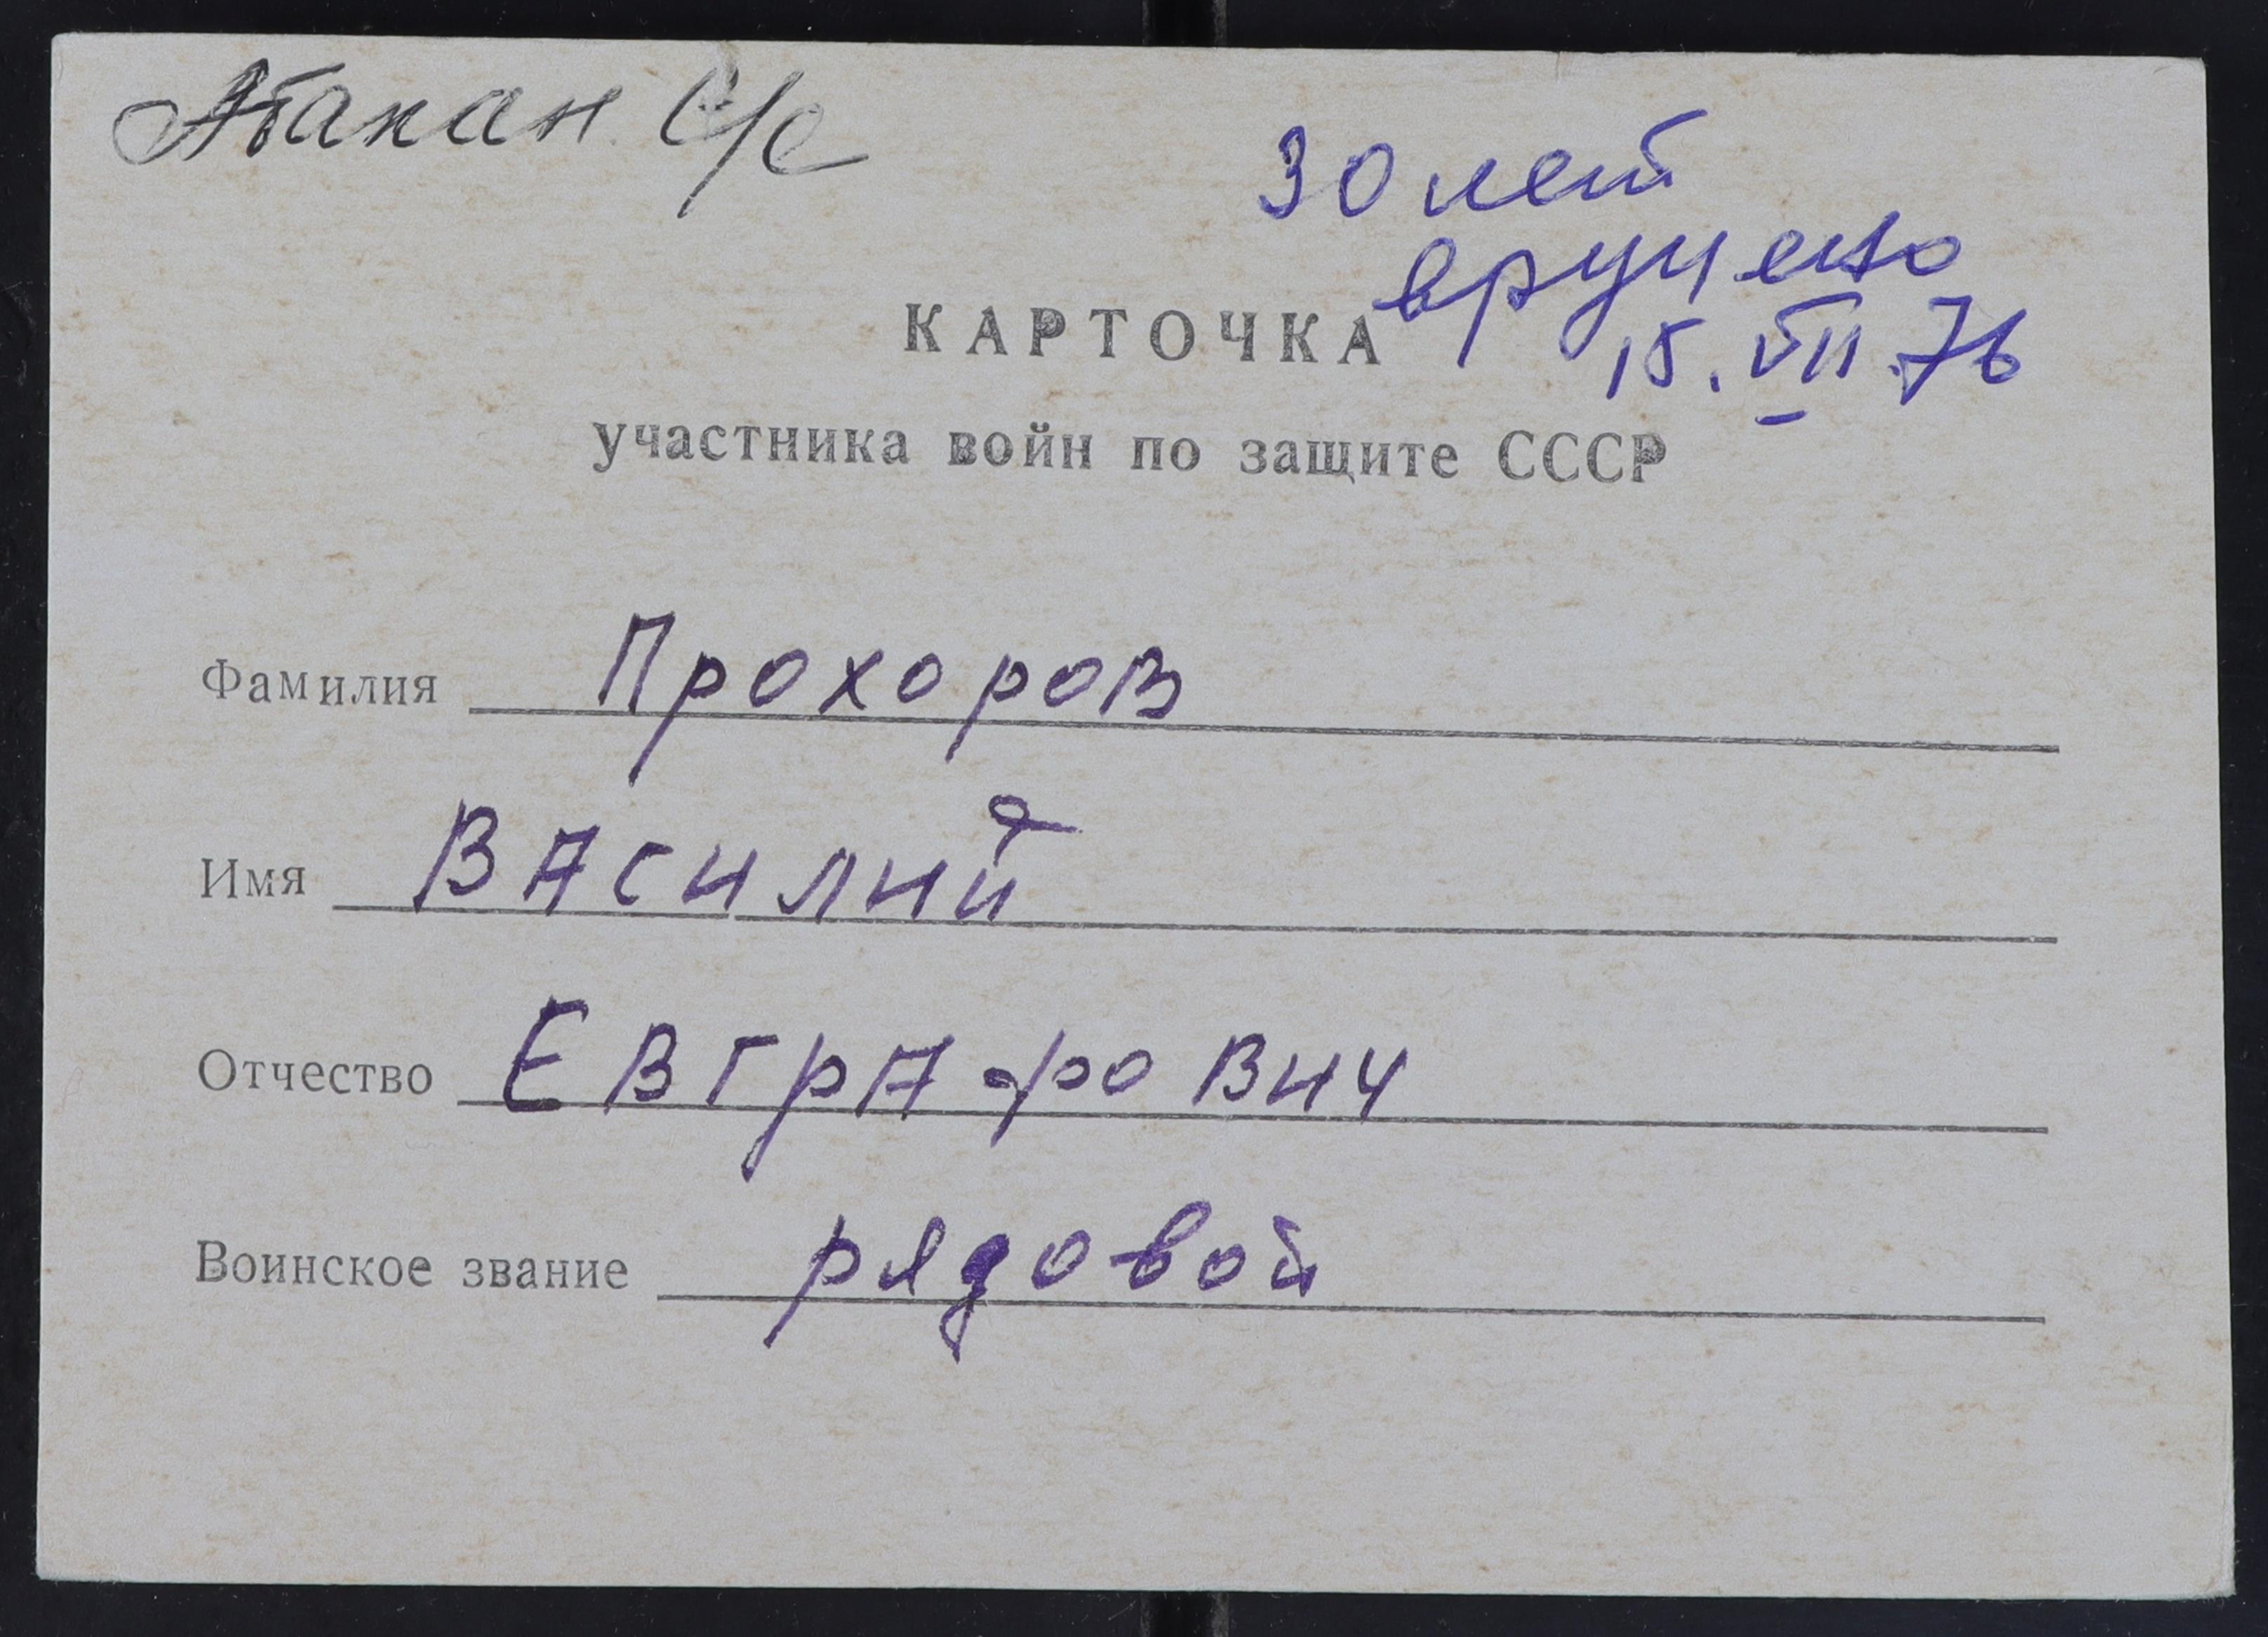 Абакан с/с
30 лет
вручено
15.VII.76
КАРТОЧКА
участника войн по защите СССР
Фамилия Прохоров
Имя ВАсилий
Отчество ЕВгрАфоВич
Воинское звание рядовой